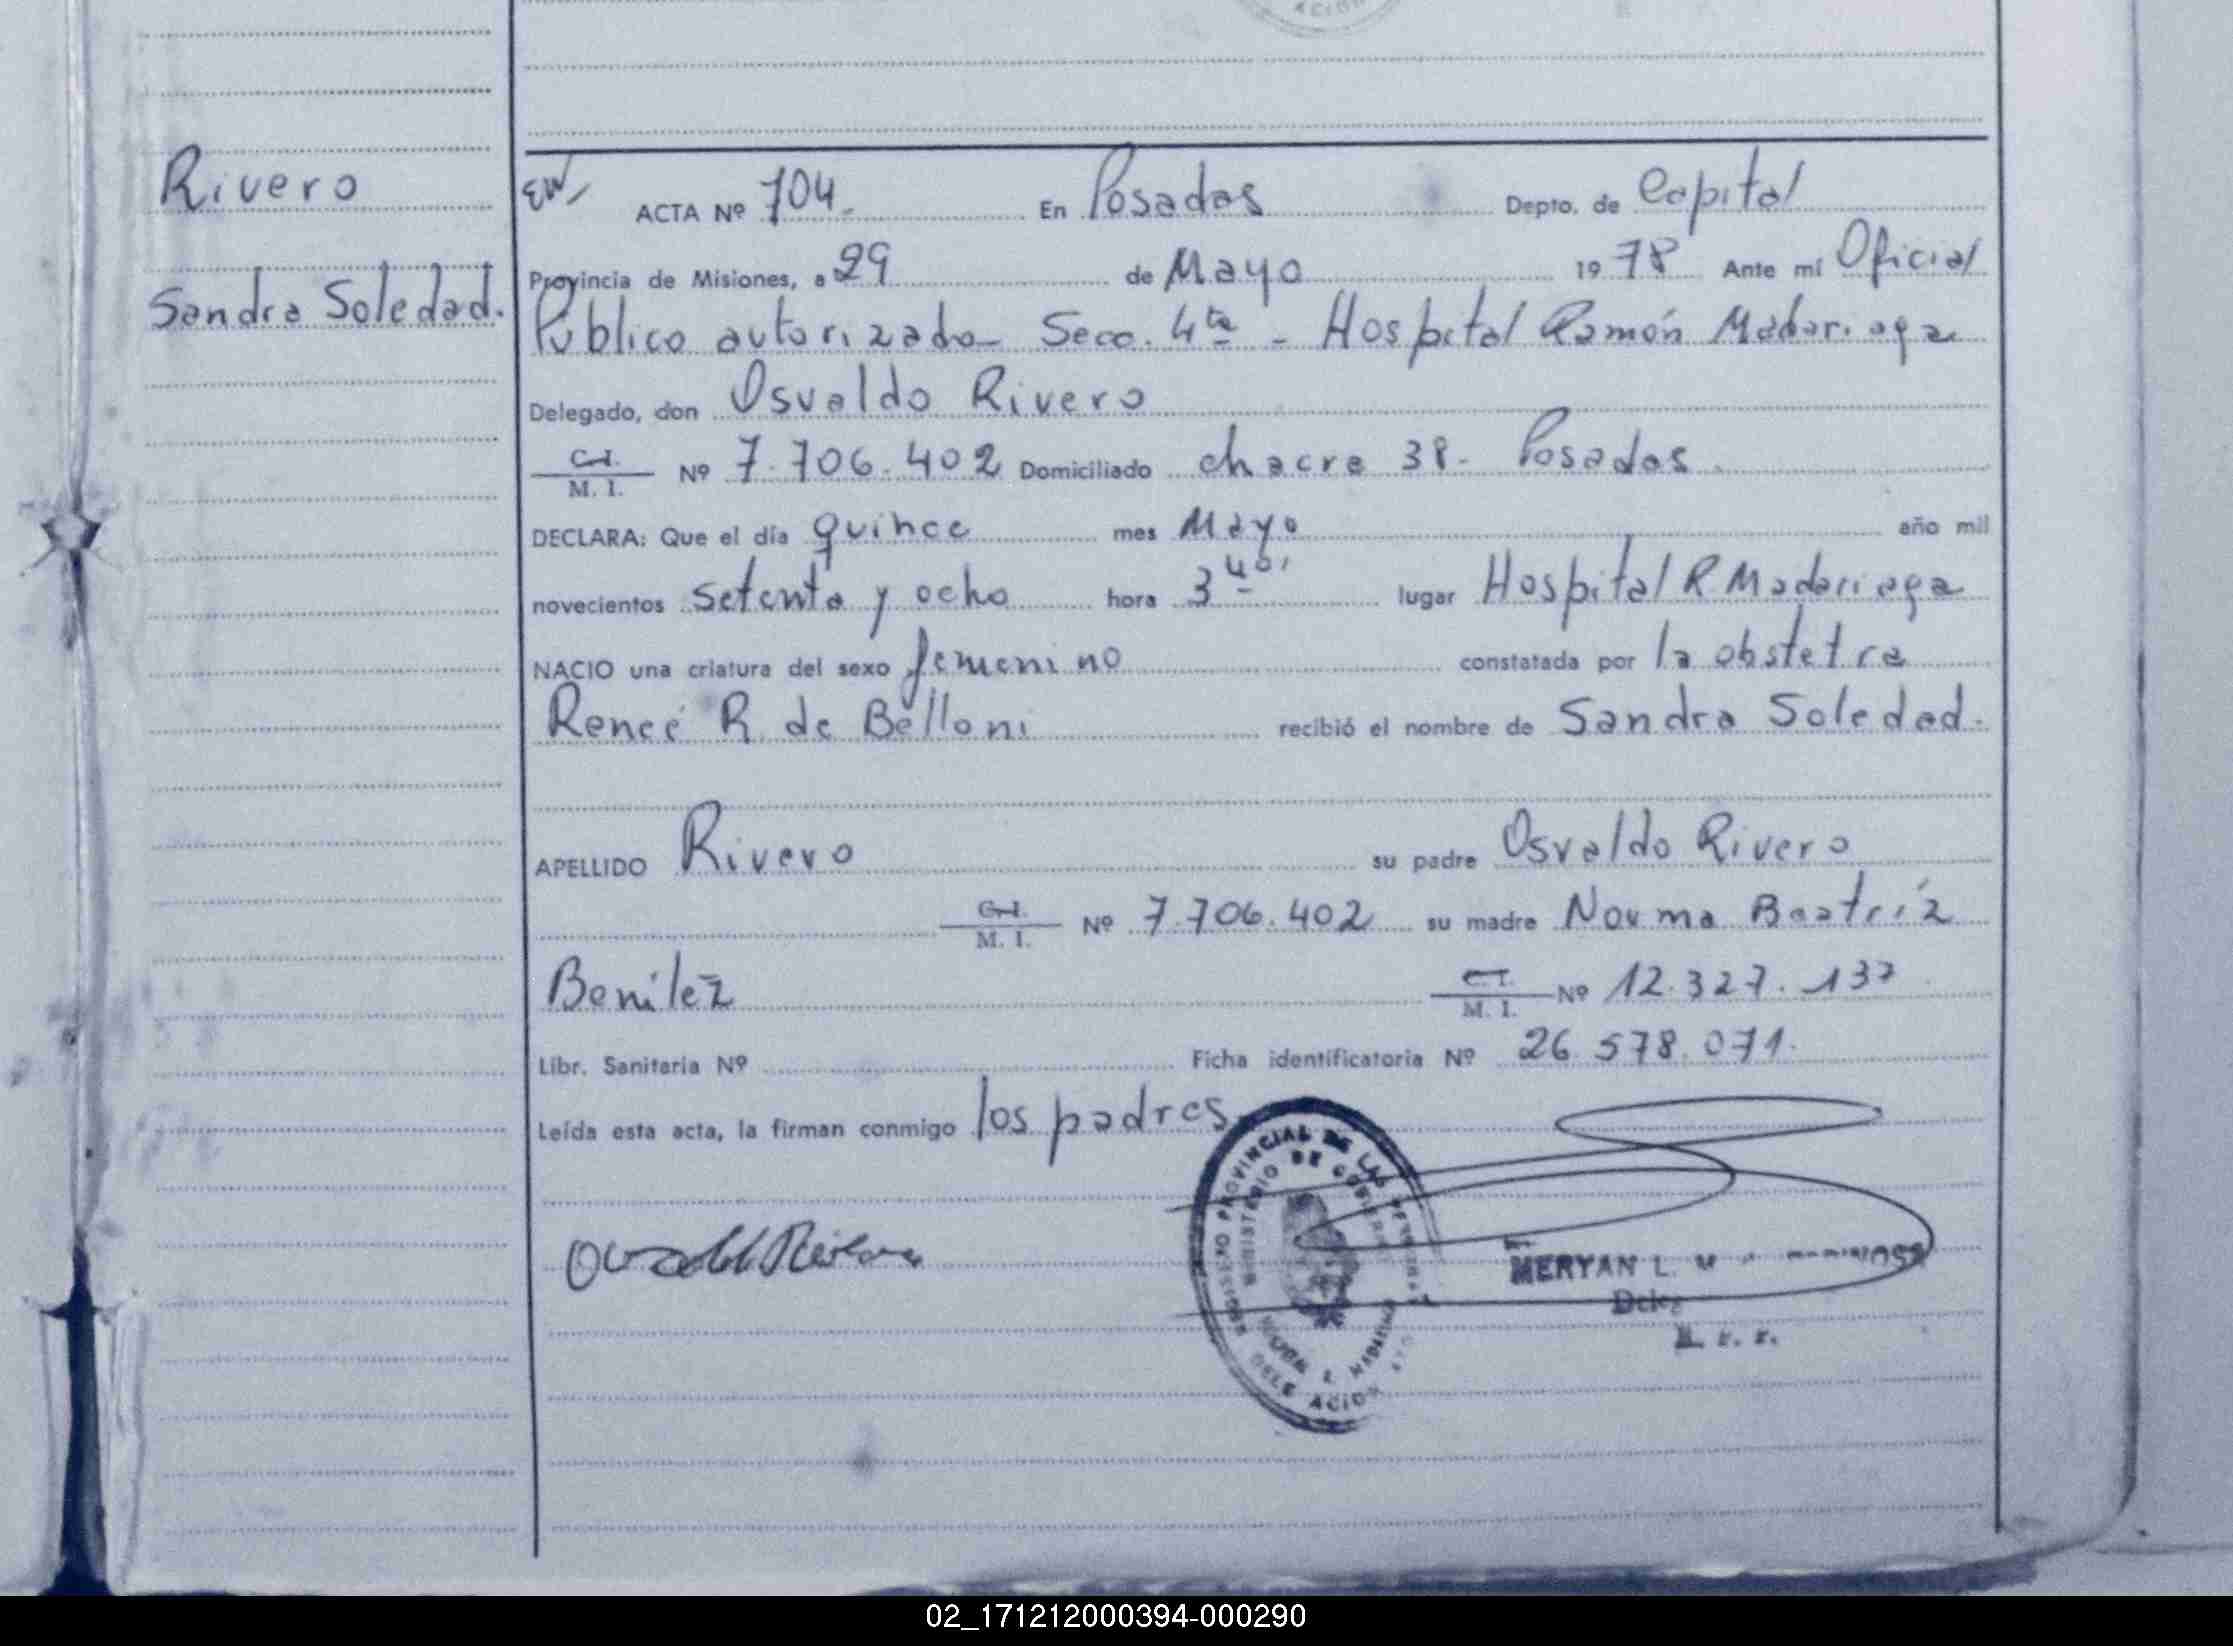 ACION
Rivero
Sandra Soledad.
ACTA Nº 704. En Posadas Depto. de Capital
Provincia de Misiones, a 29 de Mayo 1978 Ante mí Oficial
Público autorizado - Secc. 4ta - Hospital Ramón Madariaga
Delegado, don Osvaldo Rivero
C.I. / M. I. Nº 7.706.402 Domiciliado chacra 38 - Posadas
DECLARA: Que el día quince mes Mayo año mil
novecientos setenta y ocho hora 3 40' lugar Hospital R Madariaga
NACIO una criatura del sexo femenino constatada por la obstetra
Reneé R. de Belloni recibió el nombre de Sandra Soledad.
APELLIDO Rivero su padre Osvaldo Rivero
C.I. / M. I. Nº 7.706.402 su madre Norma Beatríz
Benitez C.I. / M. I. Nº 12.327.137
Libr. Sanitaria Nº Ficha identificatoria Nº 26.578.071.
Leída esta acta, la firman conmigo los padres
PROVINCIAL DE LAS
MINISTERIO DE
MERYAN L.
02_171212000394-000290